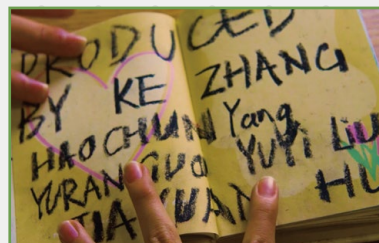 PRODUCED
BY KE ZHANG
HAOCHUN Yang
YURAN GUO YUYI LIU
JIAYUAN HU